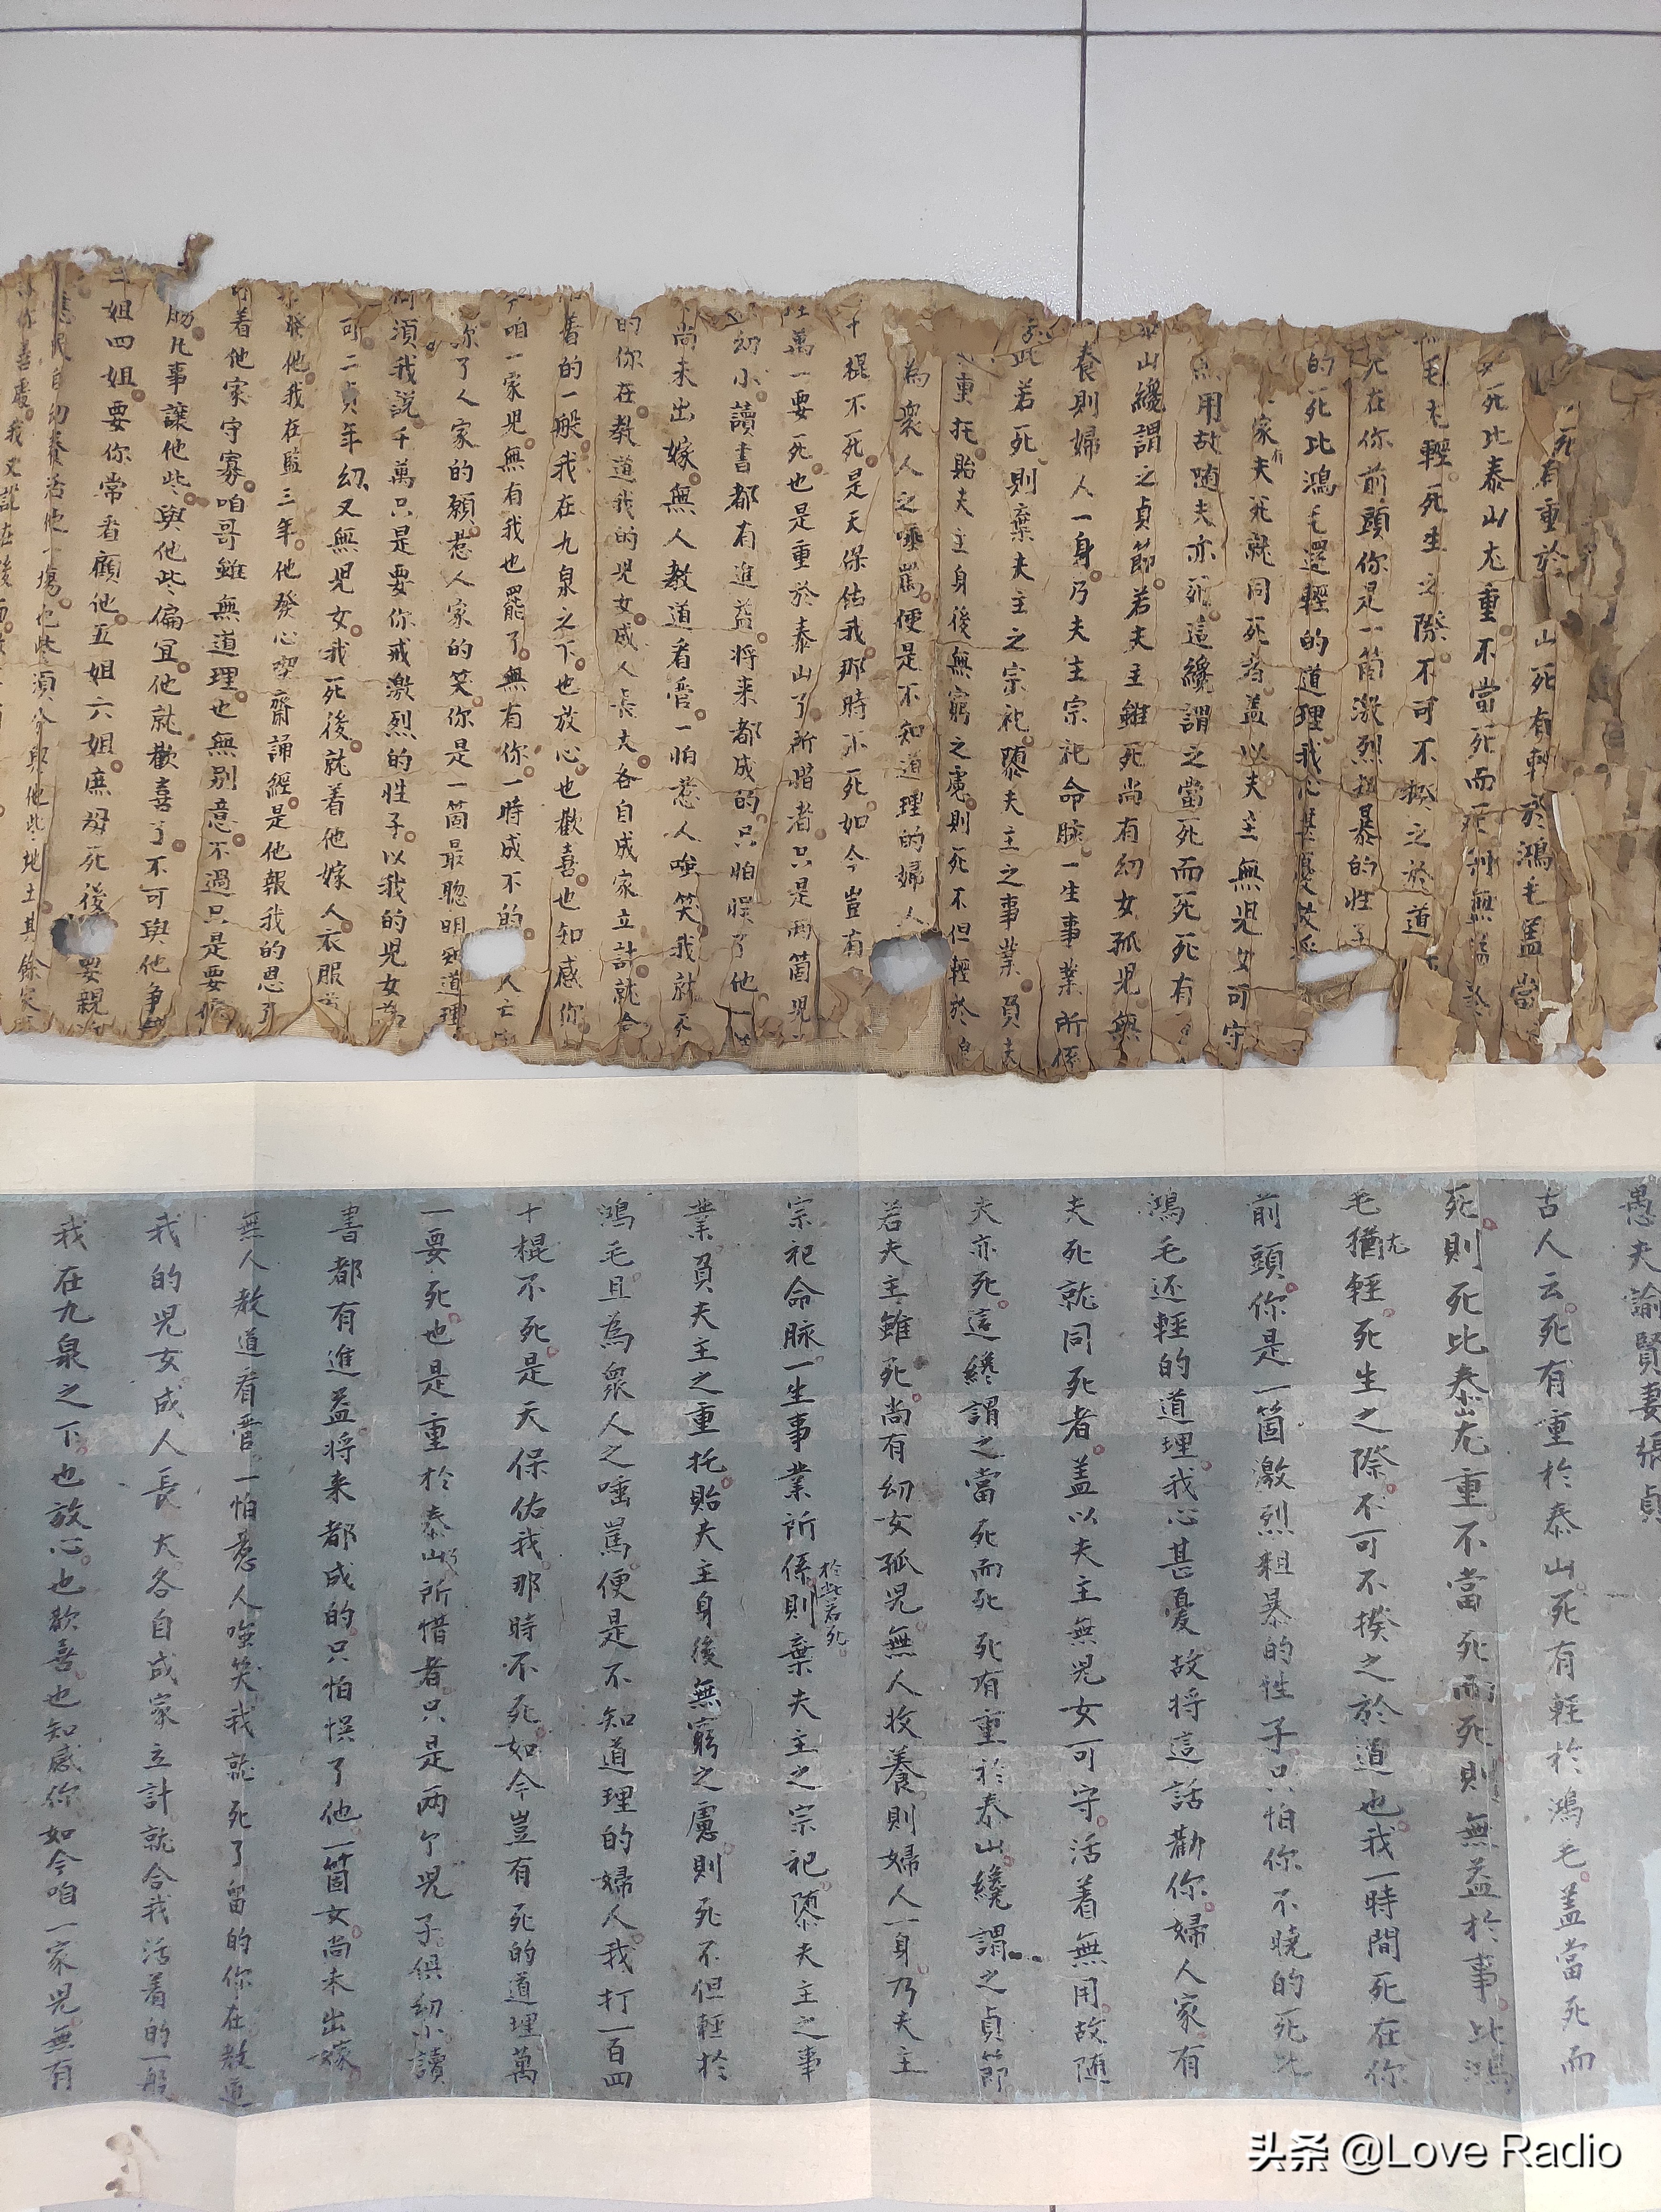 死有重於山死有輕於鴻毛蓋當
死比泰山尤重不當死而死則無益於
毛尤輕死生之際不可不揆之於道
死在你前頭你是一箇激烈粗暴的性子
的死比鴻毛還輕的道理我心甚憂故將
家有夫死就同死者蓋以夫主無児女可守
無用故随夫亦死這纔謂之當死而死死有
山纔謂之貞節若夫主雖死尚有幼女孤児無
養則婦人一身乃夫主宗祀命脉一生事業所係
於此若死則棄夫主之宗祀隳夫主之事業負夫
重托貽夫主身後無窮之慮則死不但輕於
為衆人之唾罵便是不知道理的婦人
十棍不死是天保佑我那時不死如今豈有
萬一要死也是重於泰山了所惜者只是兩箇児
幼小讀書都有進益將来都成的只怕悮了他一
尚未出嫁無人教道看管一怕惹人嗤笑我就死
的你在教道我的児女成人長大各自成家立計就合
着的一般我在九泉之下也放心也歡喜也知感你
今咱一家児無有我也罷了無有你一時成不的人亡
你了人家的願惹人家的笑你是一箇最聰明知道理
何須我說千萬只是要你戒激烈的性子以我的児女為
可二貞年幼又無児女我死後就着他嫁人衣服
發他我在監三年他發心喫齋誦經是他報我的恩了
着他家守寡咱哥雖無道理也無别意不過只是要便
凡事讓他些與他些偏宜他就歡喜了不可與他争
姐四姐要你常看顧他五姐六姐庶母死後要親
應民自幼養活他一塲也些須分與他些地土其餘家
你善處我又說在後面
愚夫諭賢妻張貞
古人云死有重於泰山死有輕於鴻毛蓋當死而
死則死比泰山尤重不當死而死則無益於事比鴻
毛猶尤輕死生之際不可不揆之於道也我一時間死在你
前頭你是一箇激烈粗暴的性子只怕你不曉的死比
鴻毛还輕的道理我心甚憂故将這話勸你婦人家有
夫死就同死者蓋以夫主無児女可守活着無用故随
夫亦死這纔謂之當死而死死有重於泰山纔謂之貞節
若夫主雖死尚有幼女孤児無人收養則婦人一身乃夫主
宗祀命脉一生事業所係於此若死則棄夫主之宗祀隳夫主之事
業負夫主之重托貽夫主身後無窮之慮則死不但輕於
鴻毛且為衆人之唾罵便是不知道理的婦人我打一百四
十棍不死是天保佑我那時不死如今豈有死的道理萬
一要死也是重於泰山了所惜者只是两个児子俱幼小讀
書都有進益将来都成的只怕悮了他一箇女尚未出嫁
無人教道看管一怕惹人嗤笑我就死了留的你在教道
我的児女成人長大各自成家立計就合我活着的一般
我在九泉之下也放心也歡喜也知感你如今咱一家児無有
头条 @Love Radio